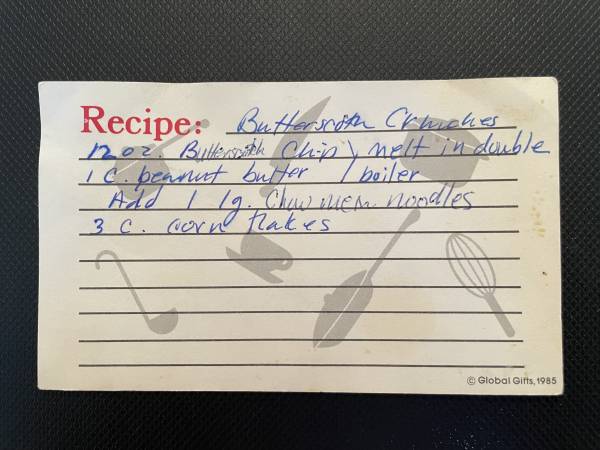 Recipe: Butterscotch Crunchies
12 oz. Butterscotch Chip \ melt in double
1 C. peanut butter / boiler
Add 1 lg. Chow mein noodles
3 C. corn flakes
© Global Gifts, 1985